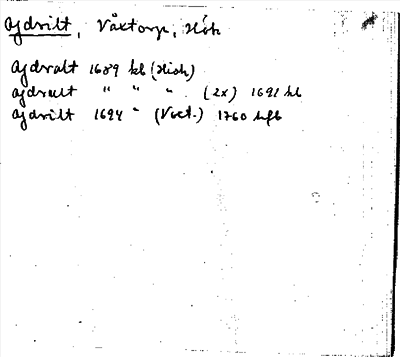 Ajdvilt, Våxtorp, Hök
Ajdvalt 1689 kb (Hish)
Ajdvalt " " " (2x) 1691 kb
Ajdvilt 1694 " (Vect.) 1760 hfb